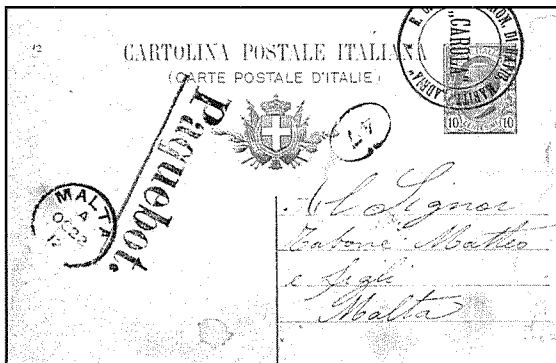 12
CARTOLINA POSTALE ITALIANA
(CARTE POSTALE D'ITALIE)
"CAROLA"
"ADRIA"
10 10
47
Paquebot.
MALTA
A
OC 22
12
Al Signor
Tabone Matteo
e figli
Malta